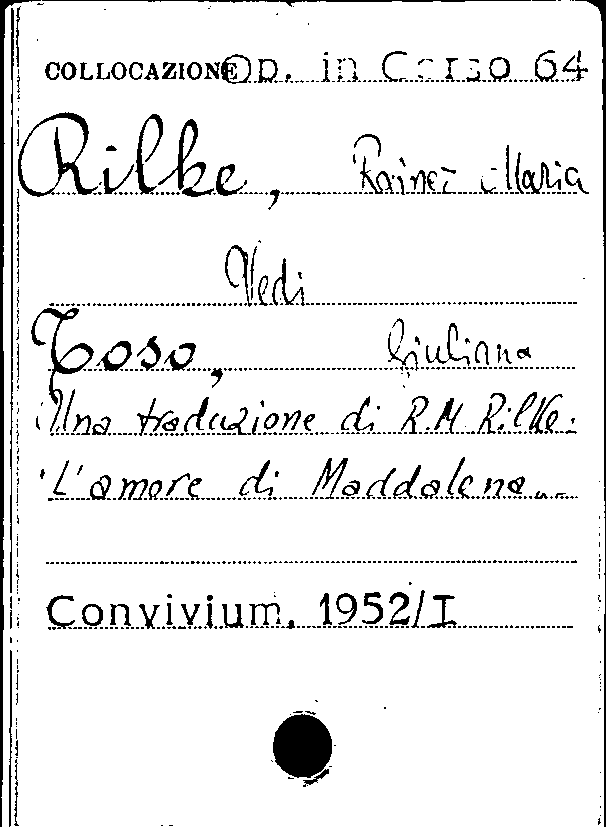 COLLOCAZIONE Op. in Corso 64
Rilke, Rainer Maria
Vedi
Toso, Giuliana
Una traduzione di R.M. Rilke:
'L'amore di Maddalena...
Convivium, 1952/I